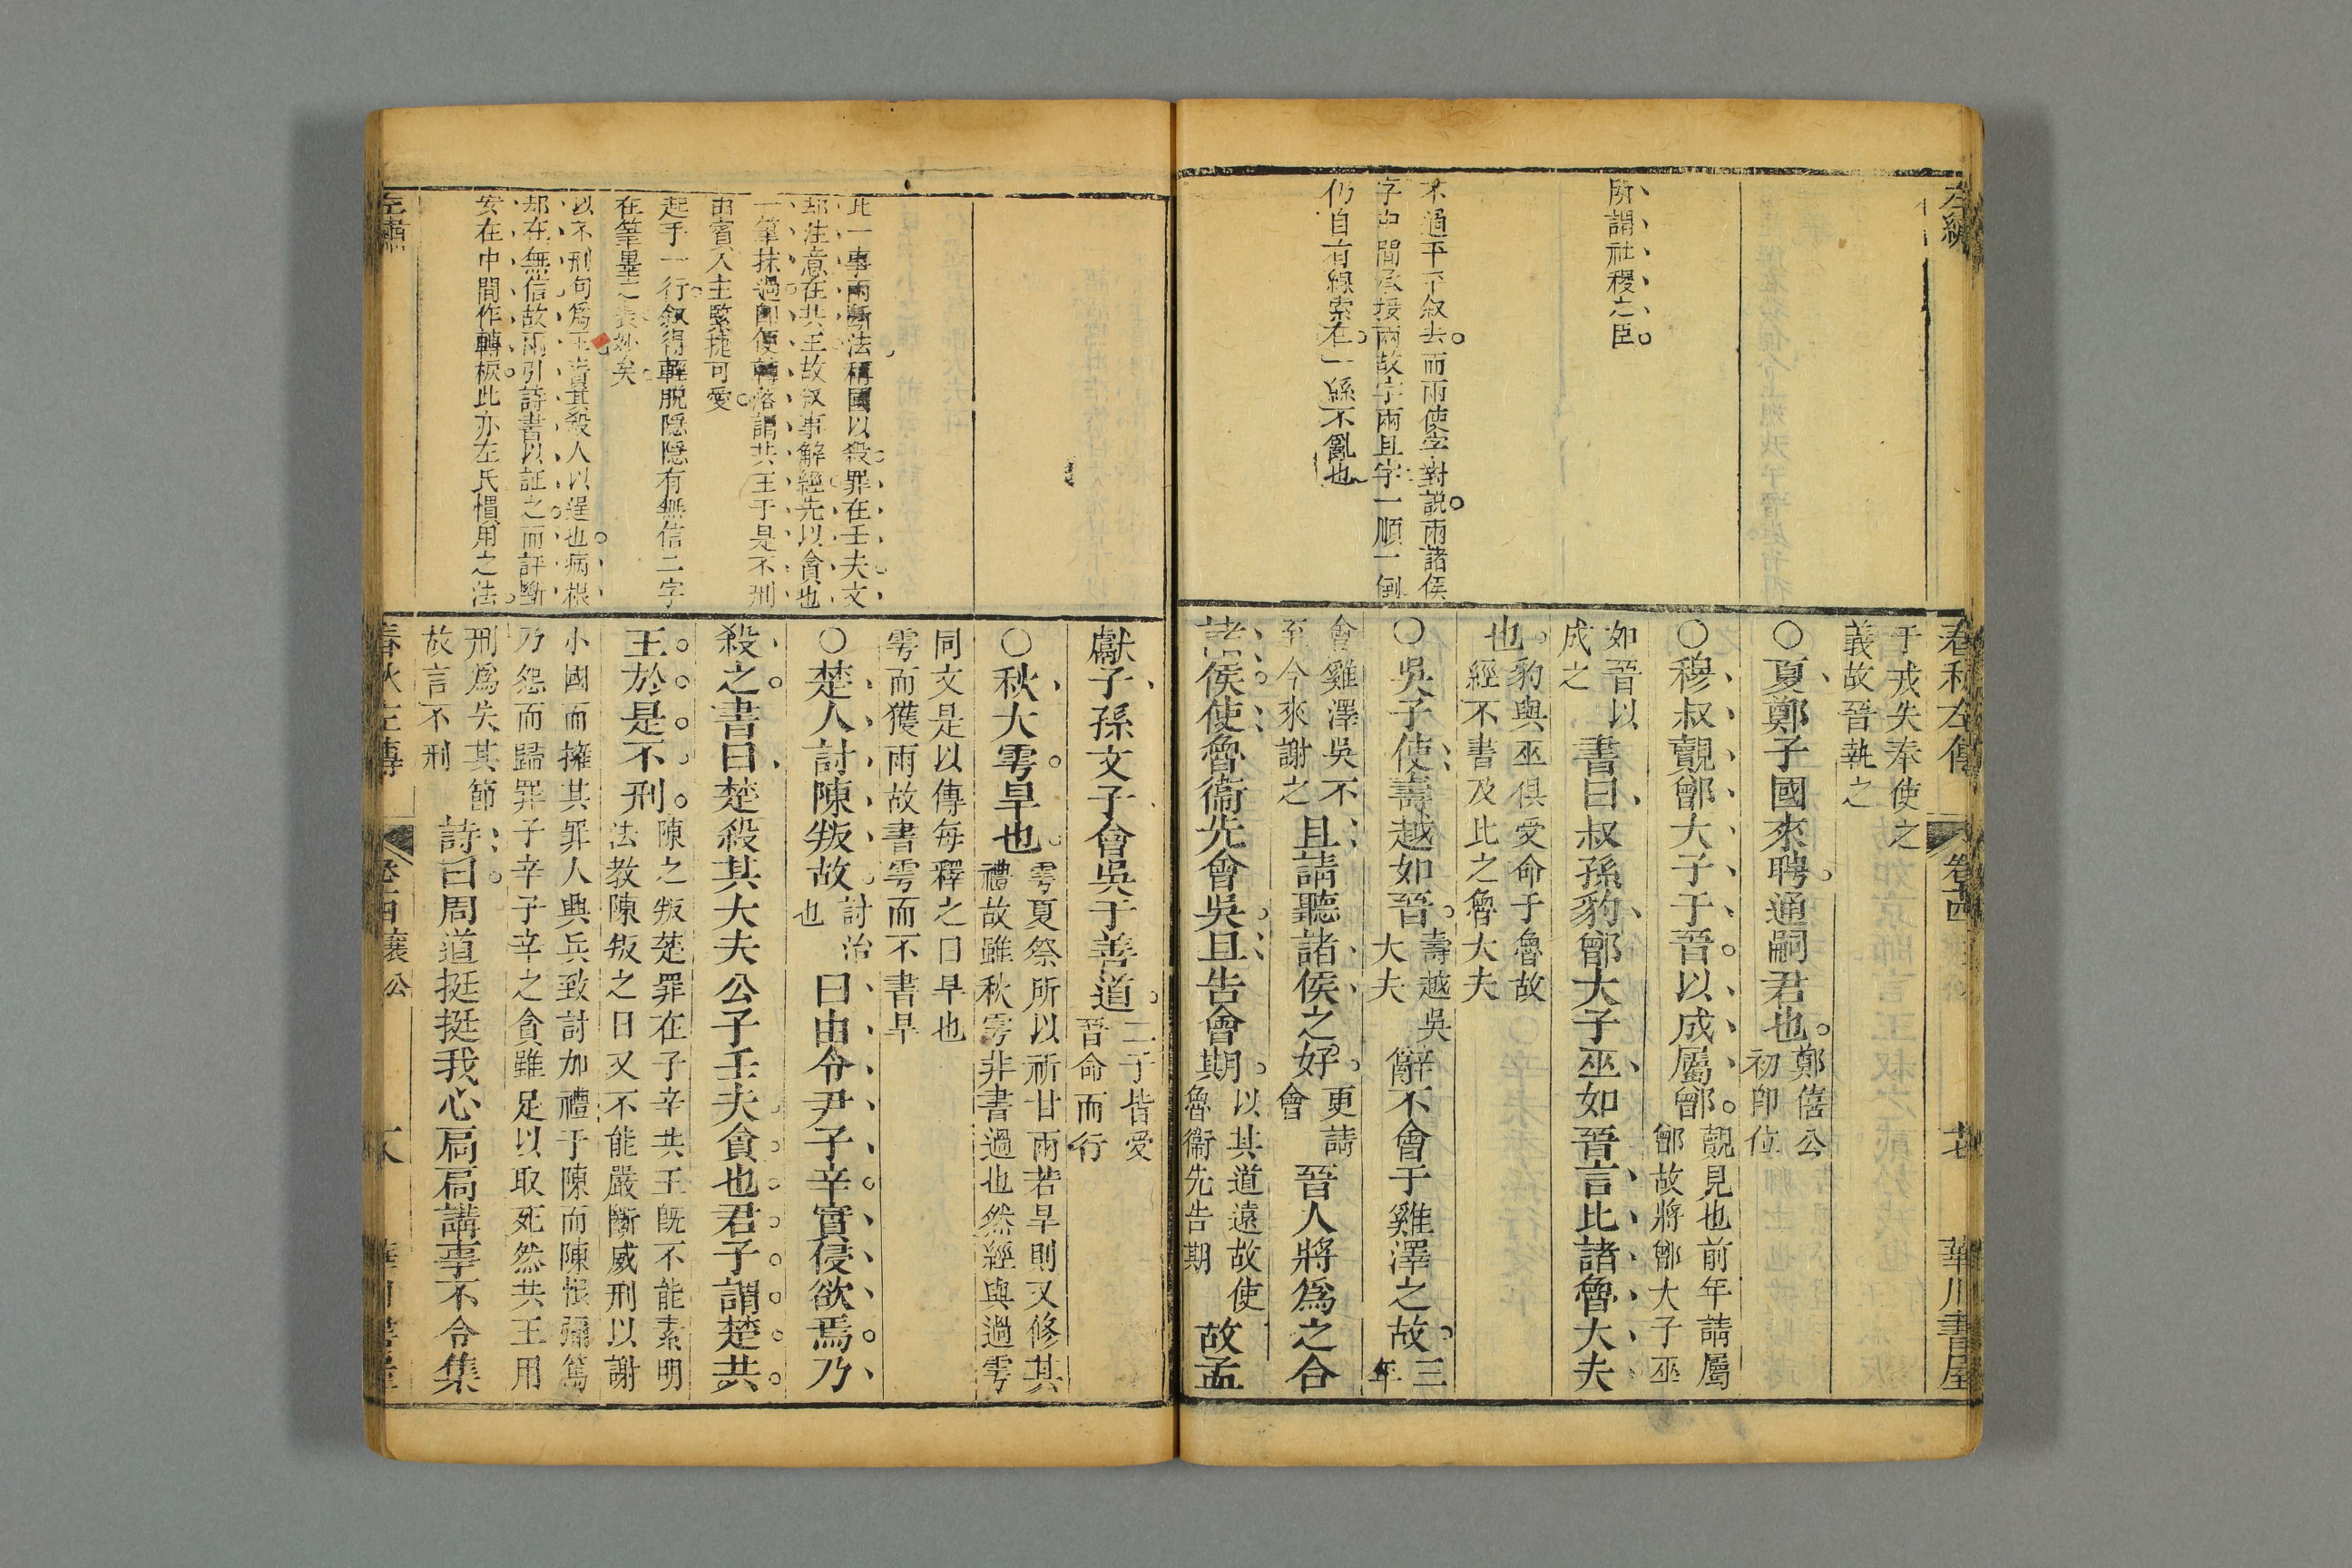 左繡
所謂社稷之臣
不過平平叙去而兩使字對説兩諸侯
字中間承接兩故字兩且字一順一倒
仍自有線索在一絲不亂也
春秋左傳
卷十四
華川書屋
于戎失奉使之
義故晉執之
○夏鄭子國來聘通嗣君也
鄭僖公
初卽位
○穆叔覿鄫大子于晉以成屬鄫
覿見也前年請屬
鄫故將鄫大子巫
如晉以
成之
書曰叔孫豹鄫大子巫如晉言比諸魯大夫
也
豹與巫俱受命于魯故
經不書及比之魯大夫
○吳子使壽越如晉
壽越吳
大夫
辭不會于雞澤之故
三
年
會雞澤吳不
至今來謝之
且請聽諸侯之好
更請
會
晉人將爲之合
諸侯使魯衞先會吳且告會期
以其道遠故使
魯衞先告期
故孟
獻子孫文子會吳于善道
二子皆受
晉命而行
○秋大雩旱也
雩夏祭所以祈甘雨若旱則又修其
禮故雖秋雩非書過也然經與過雩
同文是以傳每釋之曰旱也
雩而獲雨故書雩而不書旱
○楚人討陳叛故
討治
也
曰由令尹子辛實侵欲焉乃
殺之書曰楚殺其大夫公子壬夫貪也君子謂楚共
王於是不刑
陳之叛楚罪在子辛共王旣不能素明
法教陳叛之日又不能嚴斷威刑以謝
小國而擁其罪人興兵致討加禮于陳而陳恨彌篤
乃怨而歸罪子辛子辛之貪雖足以取死然共王用
刑爲失其節
故言不刑
詩曰周道挺挺我心扃扃講事不令集
此一事兩斷法稱國以殺罪在壬夫文
却注意在共王故叙事解經先以貪也
一筆抹過卽便轉落謂共王于是不刑
由賓入主緊捷可愛
起手一行叙得輕脫隱隱有無信二字
在筆墨之表妙矣
以不刑句爲主責其殺人以逞也病根
却在無信故兩引詩書以証之而評斷
安在中間作轉棙此亦左氏慣用之法
左繡
春秋左傳
襄公